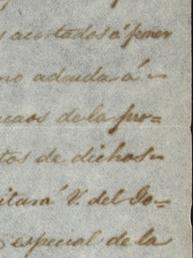 acortados á poner
no adeuda á
de la pro=
tos de dichos
V. del Do-
especial de la